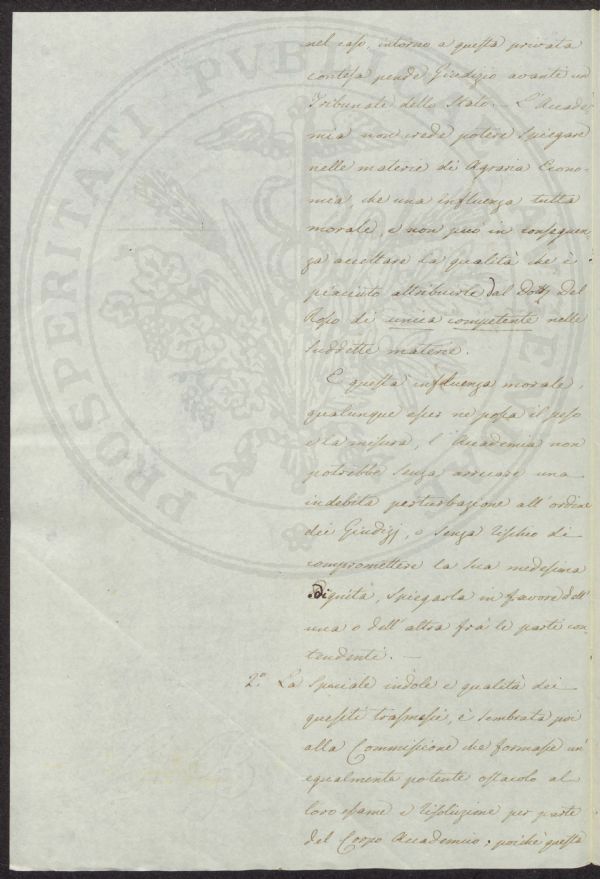 nel caso, intorno a questa privata
contesa pende Giudizio avanti un
Tribunale dello Stato. L'Accade
mia non crede potere spiegare
nelle materie di Agraria Econo-
mia, che una influenza tutta
morale, e non può in conseguen
za accettare la qualità che è
piaciuto attribuirle dal Dott. Del
Rosso di unica competente nelle
suddette materie.
E questa influenza morale,
qualunque esser ne possa il peso
e la misura, l'Accademia non
potrebbe senza arrecare una
indebita perturbazione all'ordine
dei Giudizj, o senza rischio di
compromettere la sua medesima
dignità, spiegarla in favore dell'
una o dell'altra frà le parti con
tendenti. —
2.° La speciale indole e qualità dei
quesiti trasmessi, è sembrata poi
alla Commissione che formasse un'
egualmente potente ostacolo al
loro esame e risoluzione per parte
del Corpo Accademico; poichè questa
PROSPERITATI PVBLICAE